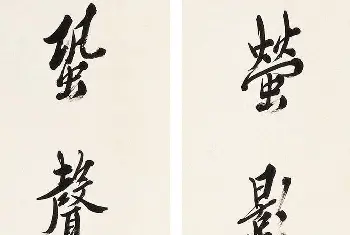 螢影
蛩聲